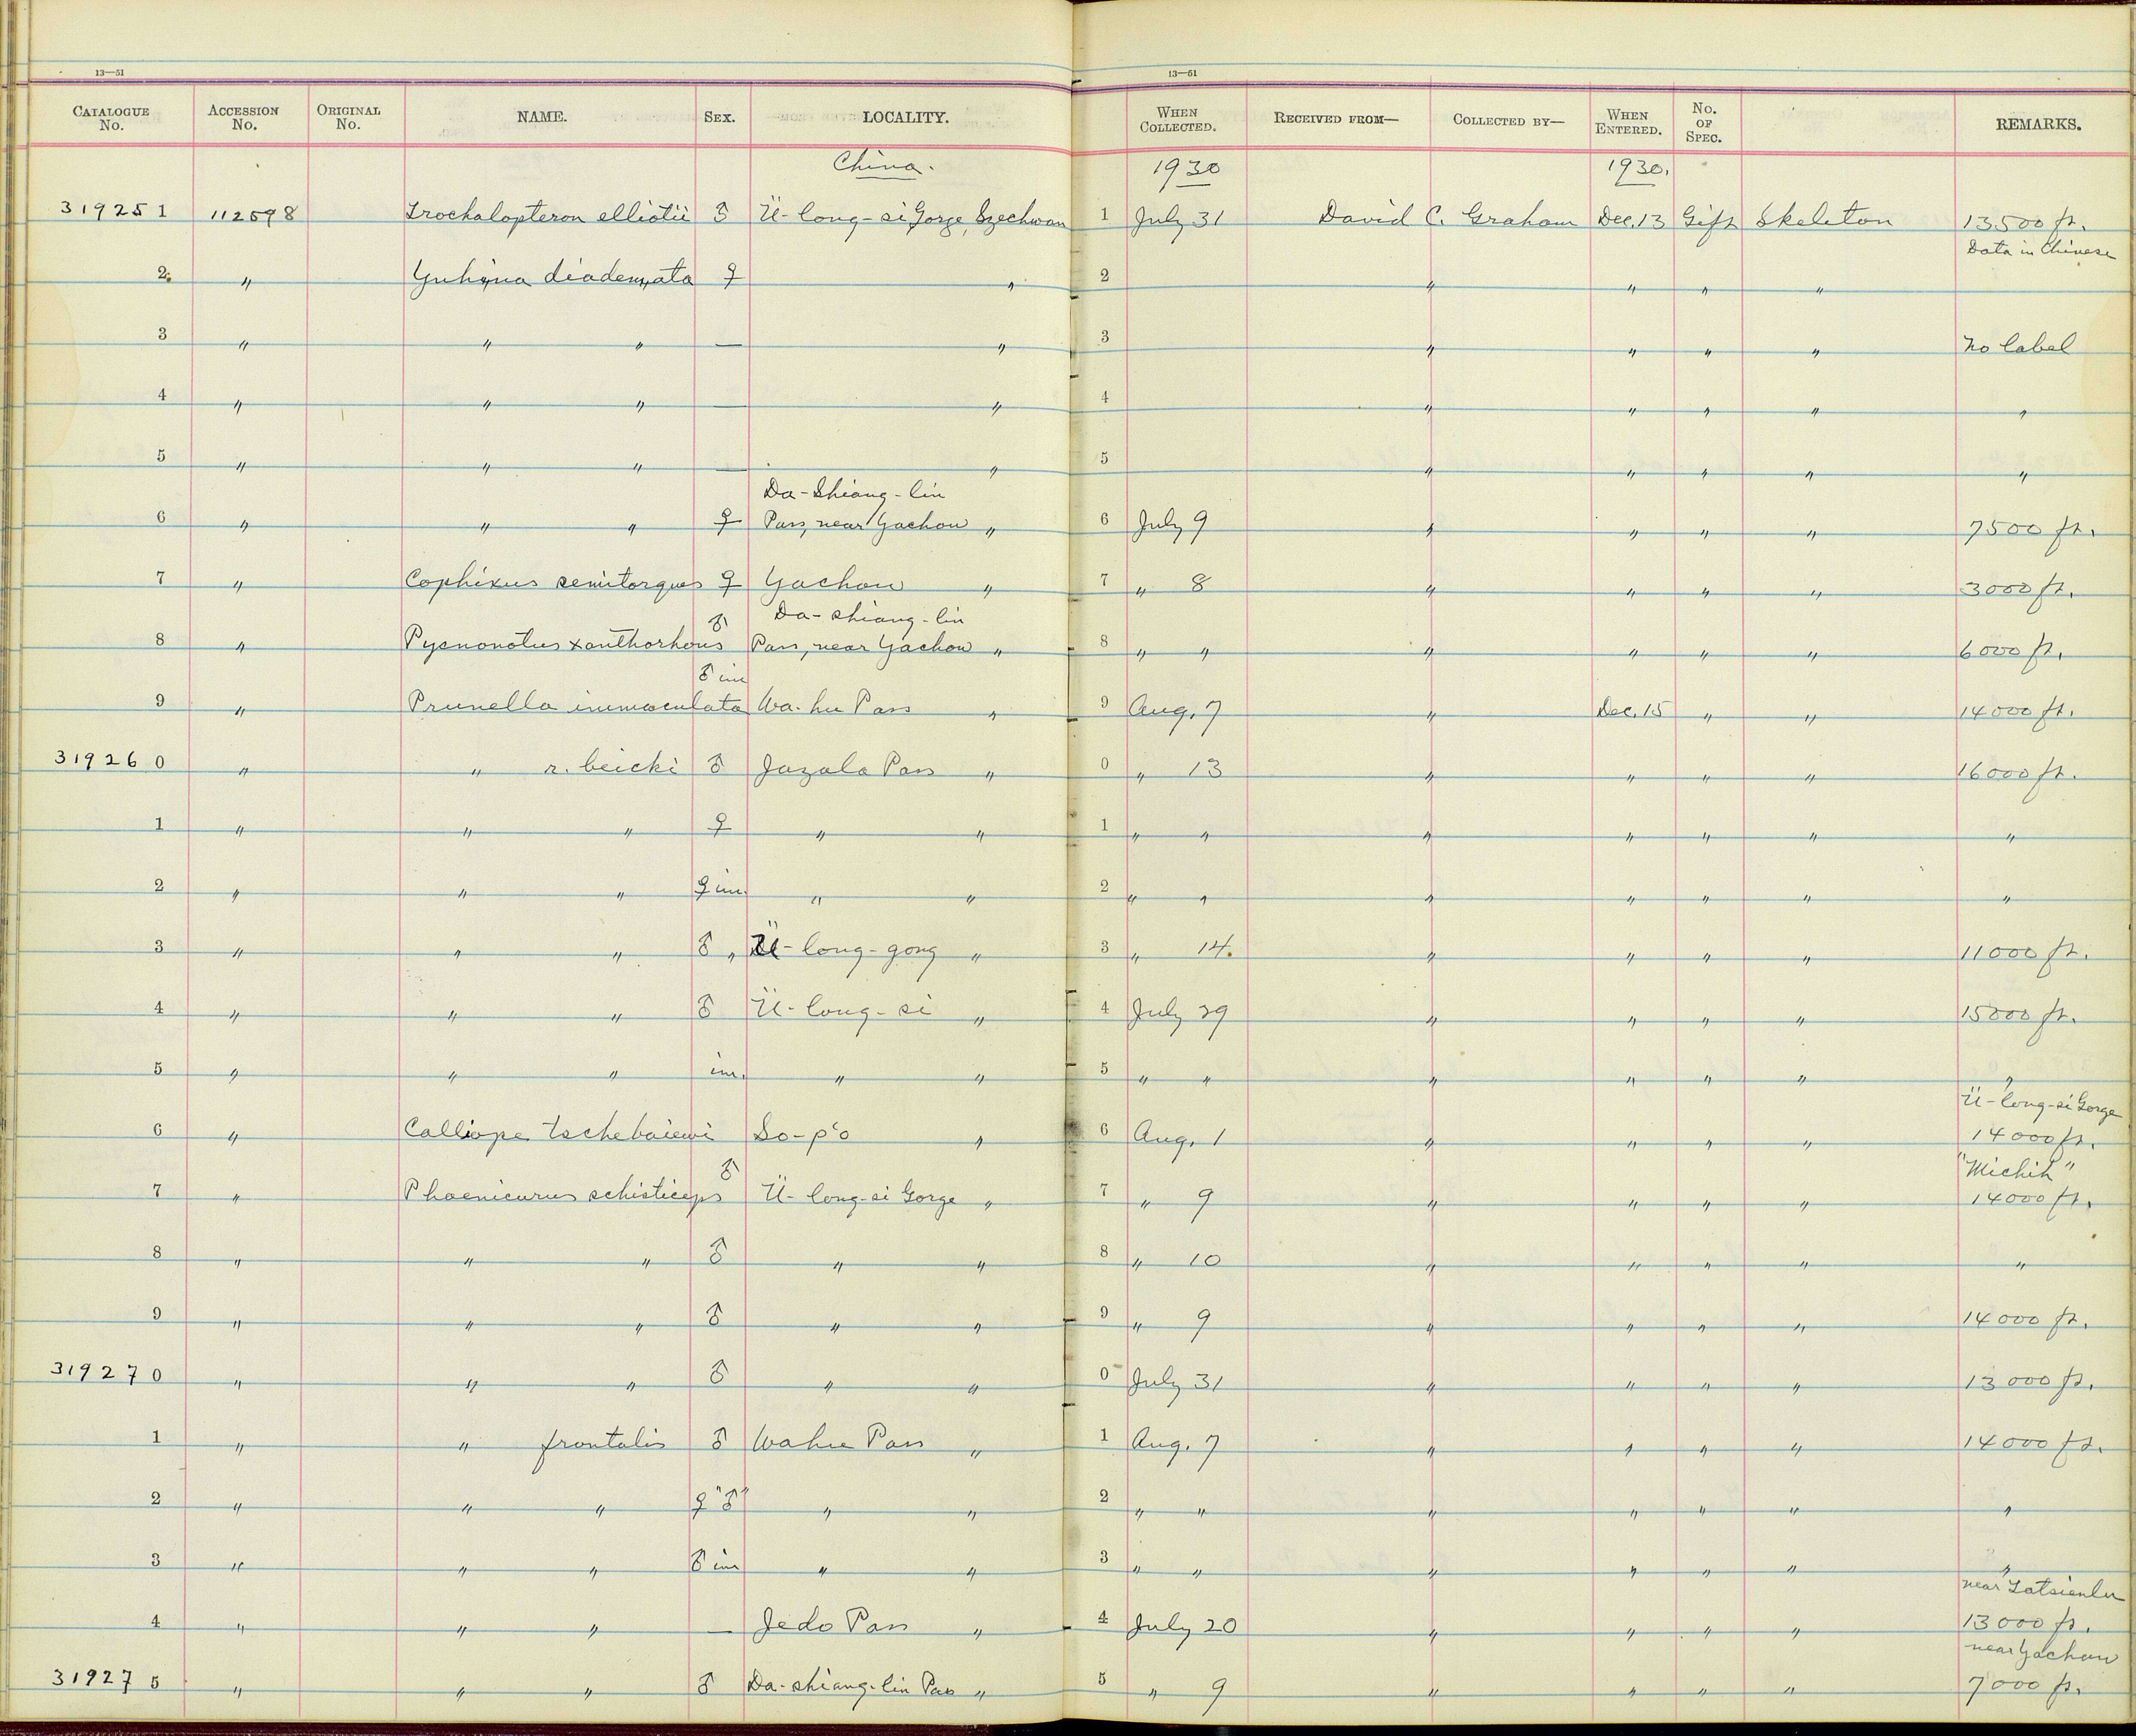 13—51 13—51
CATALOGUE No. ACCESSION No. ORIGINAL No. NAME. SEX. LOCALITY. WHEN COLLECTED. RECEIVED FROM— COLLECTED BY— WHEN ENTERED. No. OF SPEC. REMARKS.
China. 1930 1930.
319251 112598 Trochalopteron elliotii ♂ Ü-long-si Gorge, Szechwan 1 July 31 David C. Graham Dec. 13 Gift Skeleton 13500 ft.
Data in Chinese
2 " Yuhina diademata ♀ " 2 " " " "
3 " " " — " 3 " " " " No label
4 " " " — " 4 " " " " "
5 " " " — " 5 " " " " "
Da-Shiang-lin
6 " " " ♀ Pass, near Yachow " 6 July 9 " " " " 7500 ft.
7 " Cophixus semitorques ♀ Yachow " 7 " 8 " " " " 3000 ft.
Da-shiang-lin
8 " Pycnonotus xanthorhous ♂ Pass, near Yachow " 8 " " " " " " 6000 ft.
9 " Prunella immaculata ♂ im Wa-hu Pass " 9 Aug. 7 " Dec. 15 " " 14000 ft.
319260 " " r. beicki ♂ Jazala Pass " 0 " 13 " " " " 16000 ft.
1 " " " ♀ " " 1 " " " " " " "
2 " " " ♀ im. " " 2 " " " " " " "
3 " " " ♂ " Ü-long-gong " 3 " 14. " " " " 11000 ft.
4 " " " ♂ Ü-long-si " 4 July 29 " " " " 15000 ft.
5 " " " im. " " 5 " " " " " " "
Ü-long-si Gorge
6 " Calliope tschebaiewi So-p'o " 6 Aug. 1 " " " " 14000 ft.
"Michih"
7 " Phoenicurus schisticeps ♂ Ü-long-si Gorge " 7 " 9 " " " " 14000 ft.
8 " " " ♂ " " 8 " 10 " " " " "
9 " " " ♂ " " 9 " 9 " " " " 14000 ft.
319270 " " " ♂ " " 0 July 31 " " " " 13000 ft.
1 " " frontalis ♂ Wahu Pass " 1 Aug. 7 " " " " 14000 ft.
2 " " " ♀ "♂" " " 2 " " " " " " "
3 " " " ♂ im " " 3 " " " " " " "
near Tatsienlu
4 " " " — Jedo Pass " 4 July 20 " " " " 13000 ft.
near Yachow
319275 " " " ♂ Da-shiang-lin Pass " 5 " 9 " " " " 7000 ft.